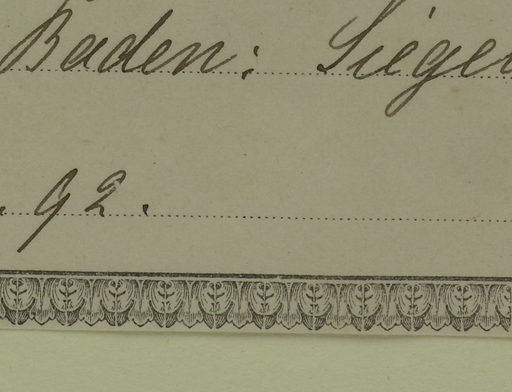 Baden: Siegel
. 92.